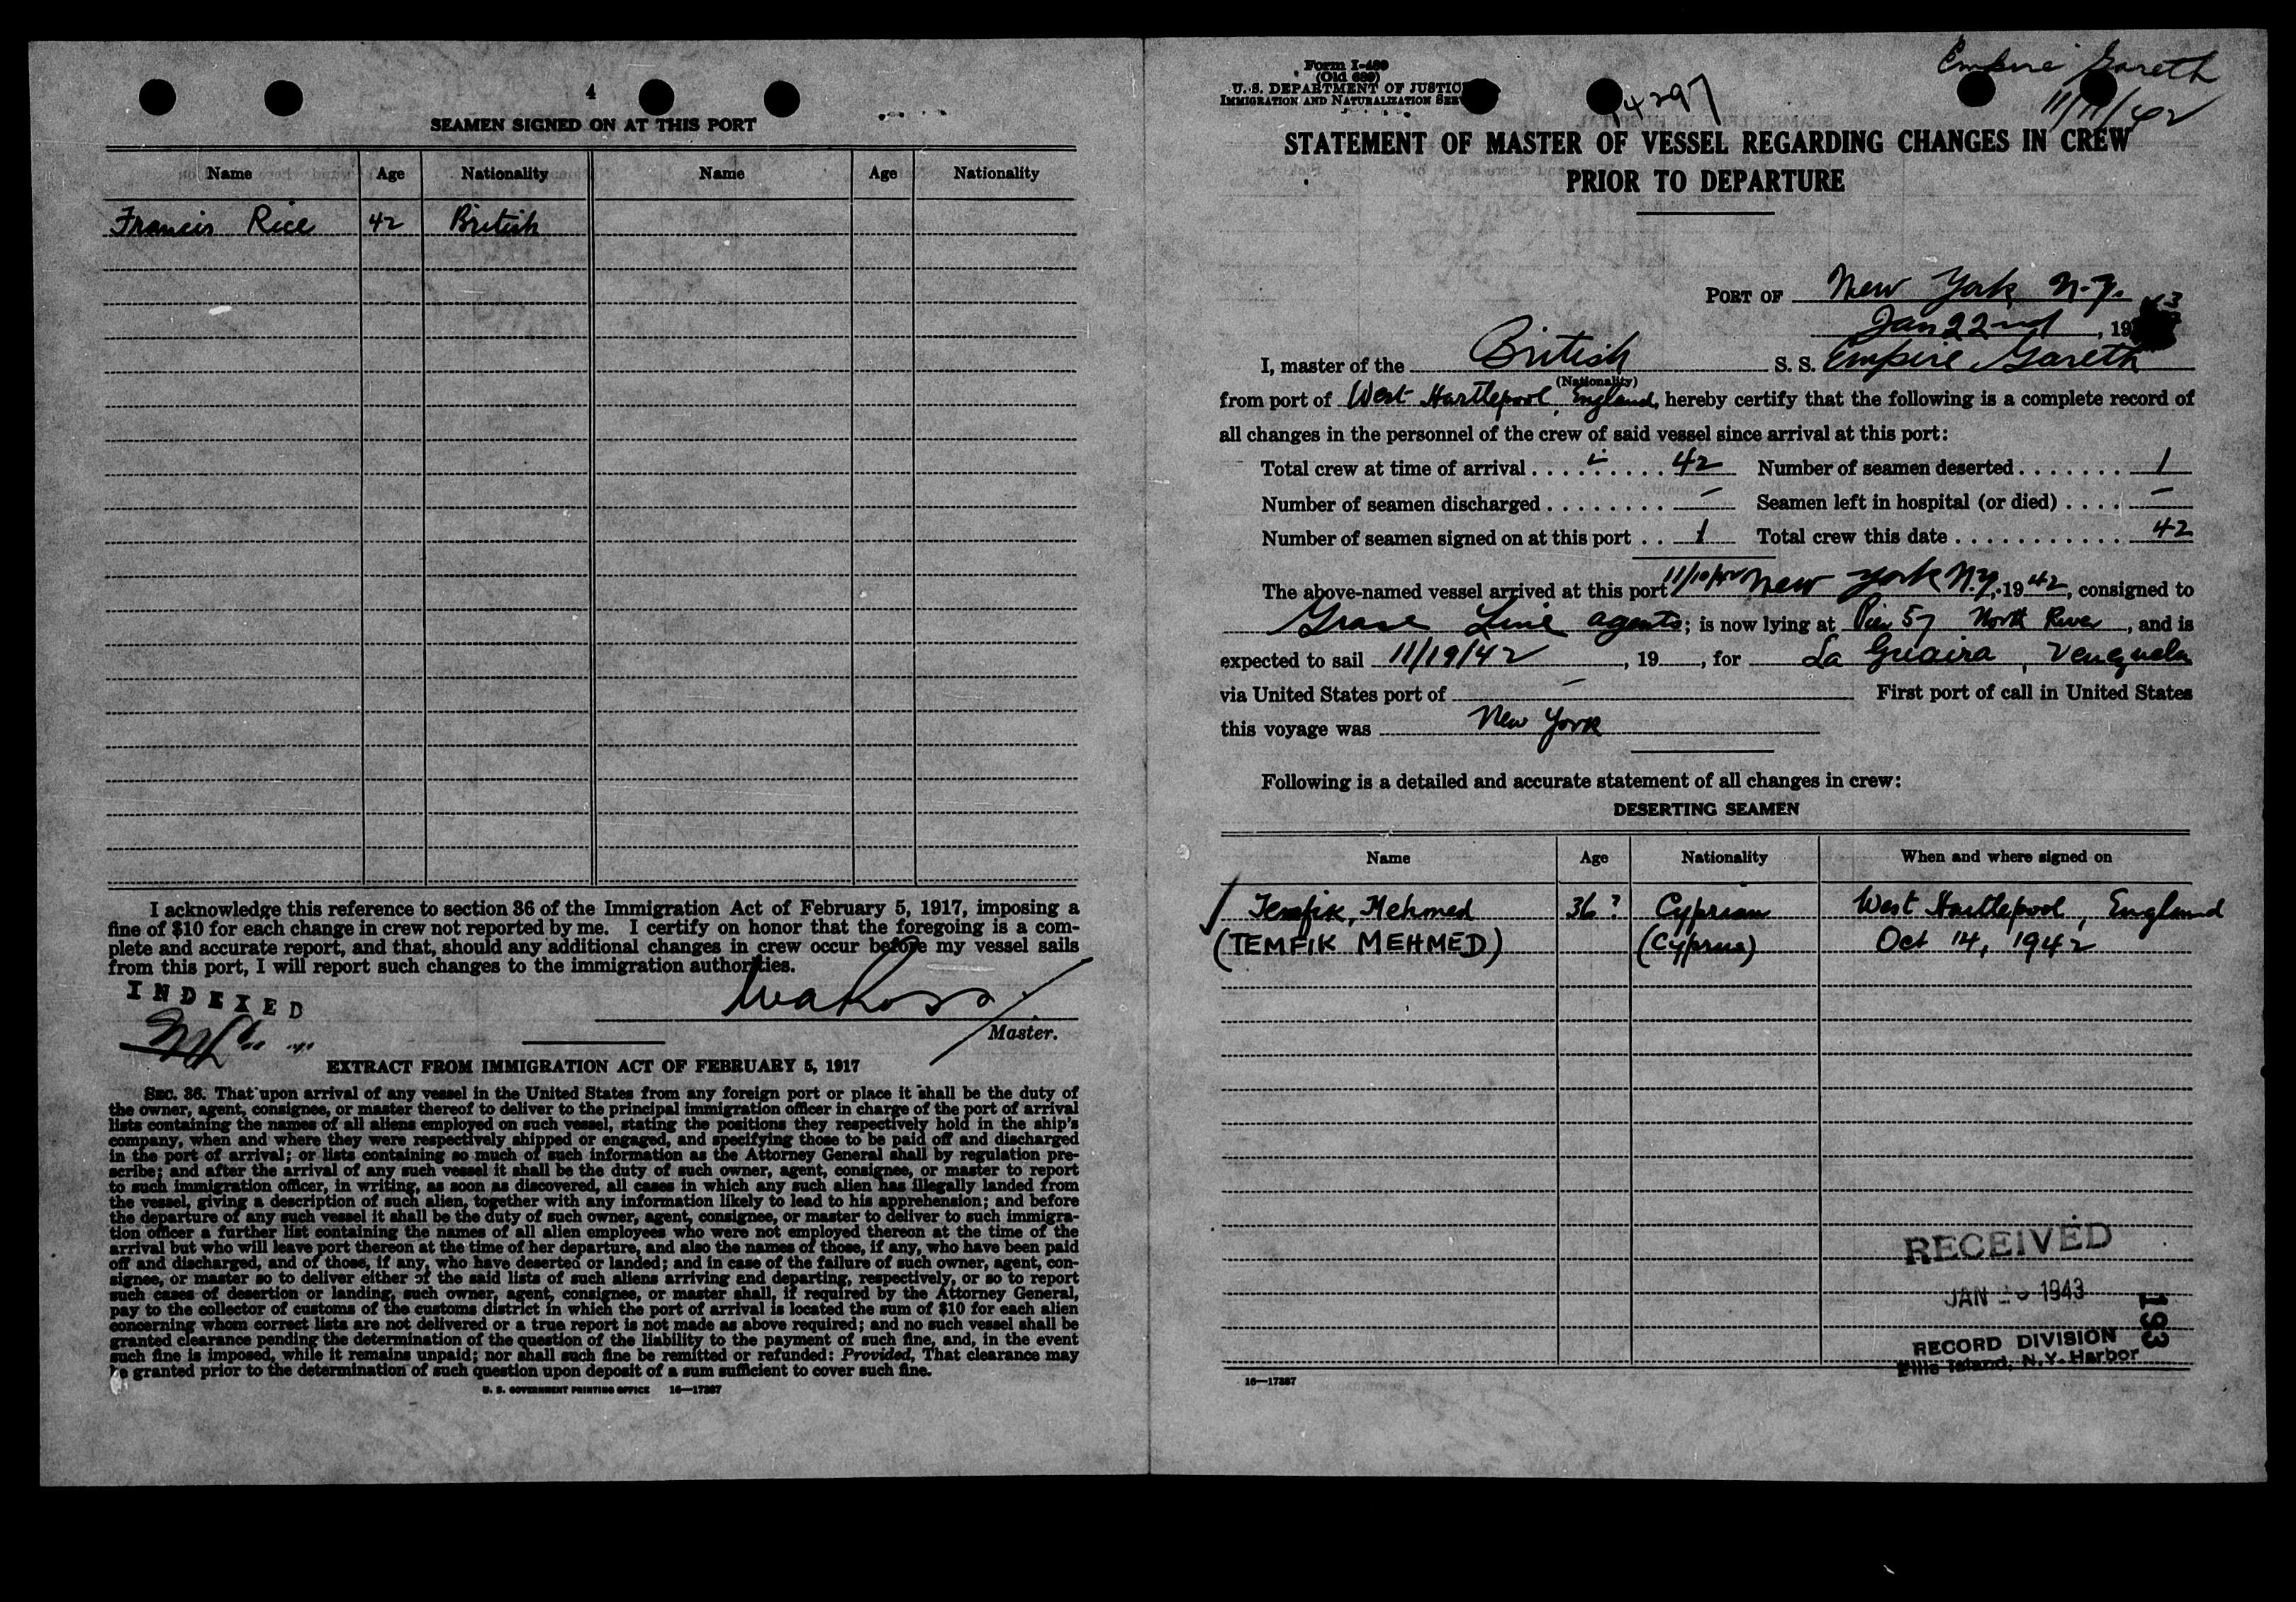 4
SEAMEN SIGNED ON AT THIS PORT
Name Age Nationality Name Age Nationality
Francis Rice 42 British
I acknowledge this reference to section 36 of the Immigration Act of February 5, 1917, imposing a
fine of $10 for each change in crew not reported by me. I certify on honor that the foregoing is a com-
plete and accurate report, and that, should any additional changes in crew occur before my vessel sails
from this port, I will report such changes to the immigration authorities.
INDEXED
Master.
EXTRACT FROM IMMIGRATION ACT OF FEBRUARY 5, 1917
SEC. 36. That upon arrival of any vessel in the United States from any foreign port or place it shall be the duty of
the owner, agent, consignee, or master thereof to deliver to the principal immigration officer in charge of the port of arrival
lists containing the names of all aliens employed on such vessel, stating the positions they respectively hold in the ship's
company, when and where they were respectively shipped or engaged, and specifying those to be paid off and discharged
in the port of arrival; or lists containing so much of such information as the Attorney General shall by regulation pre-
scribe; and after the arrival of any such vessel it shall be the duty of such owner, agent, consignee, or master to report
to such immigration officer, in writing, as soon as discovered, all cases in which any such alien has illegally landed from
the vessel, giving a description of such alien, together with any information likely to lead to his apprehension; and before
the departure of any such vessel it shall be the duty of such owner, agent, consignee, or master to deliver to such immigra-
tion officer a further list containing the names of all alien employees who were not employed thereon at the time of the
arrival but who will leave port thereon at the time of her departure, and also the names of those, if any, who have been paid
off and discharged, and of those, if any, who have deserted or landed; and in case of the failure of such owner, agent, con-
signee, or master so to deliver either of the said lists of such aliens arriving and departing, respectively, or so to report
such cases of desertion or landing, such owner, agent, consignee, or master shall, if required by the Attorney General,
pay to the collector of customs of the customs district in which the port of arrival is located the sum of $10 for each alien
concerning whom correct lists are not delivered or a true report is not made as above required; and no such vessel shall be
granted clearance pending the determination of the question of the liability to the payment of such fine, and, in the event
such fine is imposed, while it remains unpaid; nor shall such fine be remitted or refunded: Provided, That clearance may
be granted prior to the determination of such question upon deposit of a sum sufficient to cover such fine.
U. S. GOVERNMENT PRINTING OFFICE 16—17387
Form I-489
(Old 689)
U. S. DEPARTMENT OF JUSTIC
IMMIGRATION AND NATURALIZATION SER
4297
Empire Gareth
11/11/42
STATEMENT OF MASTER OF VESSEL REGARDING CHANGES IN CREW
PRIOR TO DEPARTURE
PORT OF New York N.Y.
Jan 22nd, 19 3
I, master of the British S. S. Empire Gareth
(Nationality)
from port of West Hartlepool, England, hereby certify that the following is a complete record of
all changes in the personnel of the crew of said vessel since arrival at this port:
Total crew at time of arrival . . . . . . . . 42 Number of seamen deserted . . . . . . . 1
Number of seamen discharged . . . . . . . . – Seamen left in hospital (or died) . . . . –
Number of seamen signed on at this port . . 1 Total crew this date . . . . . . . . . . . . 42
The above-named vessel arrived at this port 11/10/42 New York N.Y., 1942, consigned to
Grace Line agents; is now lying at Pier 57 North River, and is
expected to sail 11/19/42, 19 , for La Guaira, Venezuela
via United States port of – First port of call in United States
this voyage was New York
Following is a detailed and accurate statement of all changes in crew:
DESERTING SEAMEN
Name Age Nationality When and where signed on
Temfik, Mehmed 36? Cyprian West Hartlepool, England
(TEMFIK MEHMED) (Cyprus) Oct 14, 1942
RECEIVED
JAN 1943
193
RECORD DIVISION
Ellis Island, N.Y. Harbor
16—17387